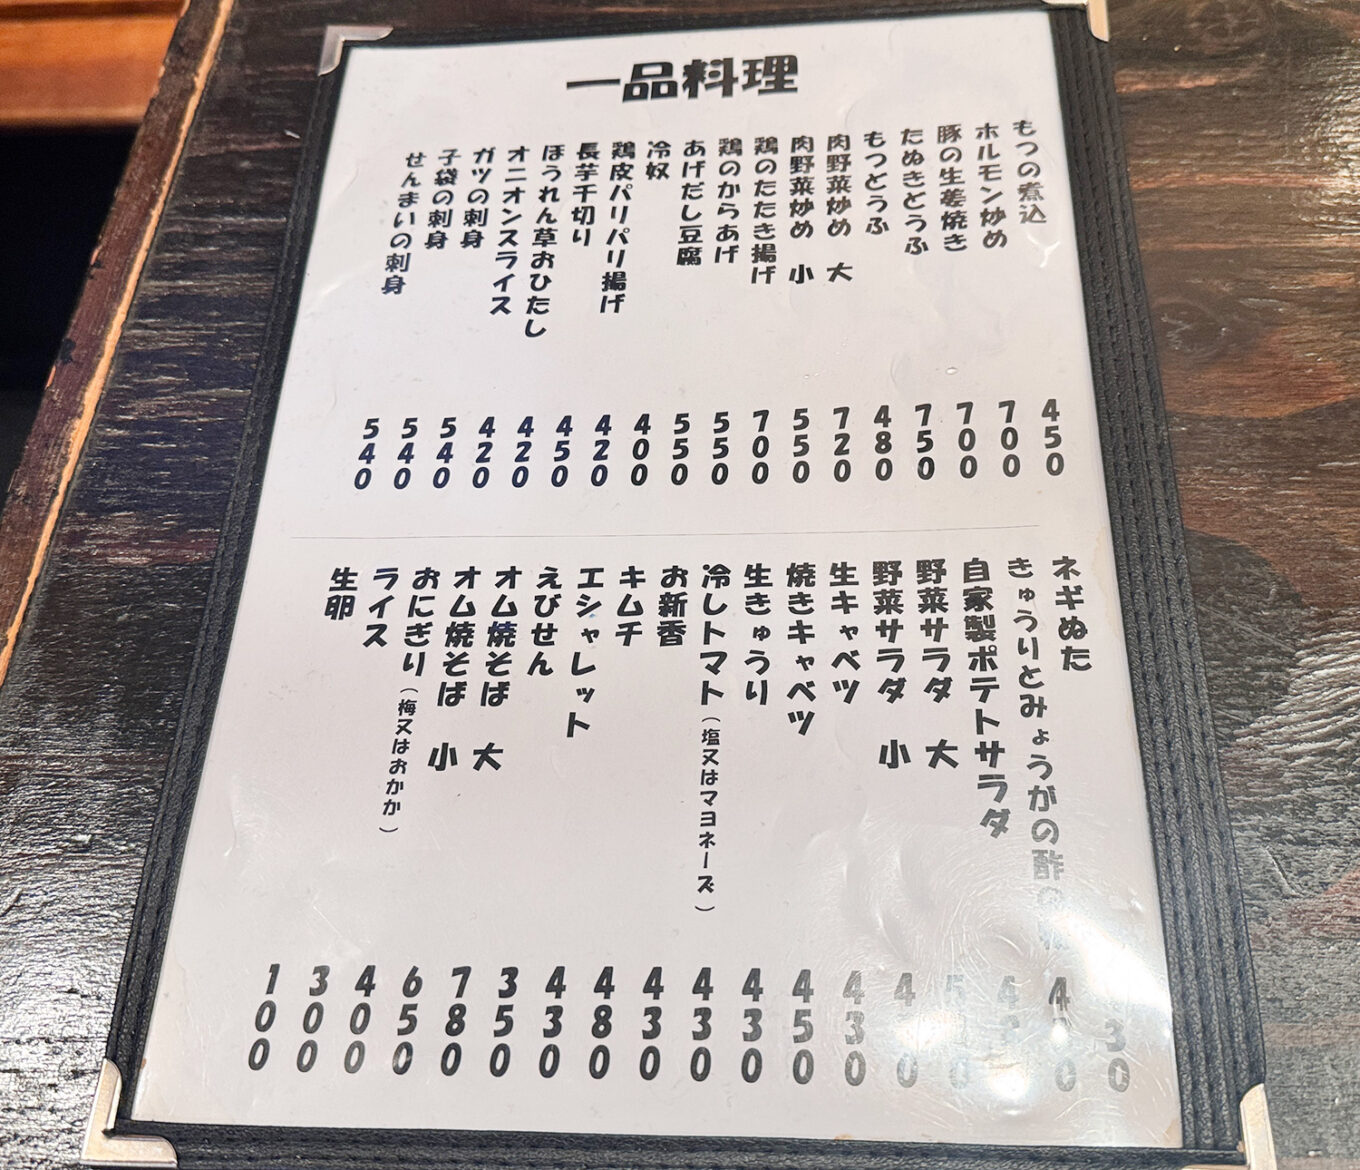 一品料理
もつの煮込 450
ホルモン炒め 700
豚の生姜焼き 700
たぬきとうふ 750
もつどうふ 480
肉野菜炒め 大 720
肉野菜炒め 小 550
鶏のたたき揚げ 700
鶏のからあげ 550
あげだし豆腐 550
冷奴 400
鶏皮パリパリ揚げ 420
長芋千切り 450
ほうれん草おひたし 420
オニオンスライス 420
ガツの刺身 540
子袋の刺身 540
せんまいの刺身 540
ネギぬた
きゅうりとみょうがの酢
自家製ポテトサラダ
野菜サラダ 大
野菜サラダ 小
生キャベツ 430
焼きキャベツ 450
生きゅうり 430
冷しトマト（塩又はマヨネーズ） 430
お新香 430
キムチ 480
エシャレット 430
えびせん 350
オム焼そば 大 780
オム焼そば 小 650
おにぎり（梅又はおかか） 400
ライス 300
生卵 100